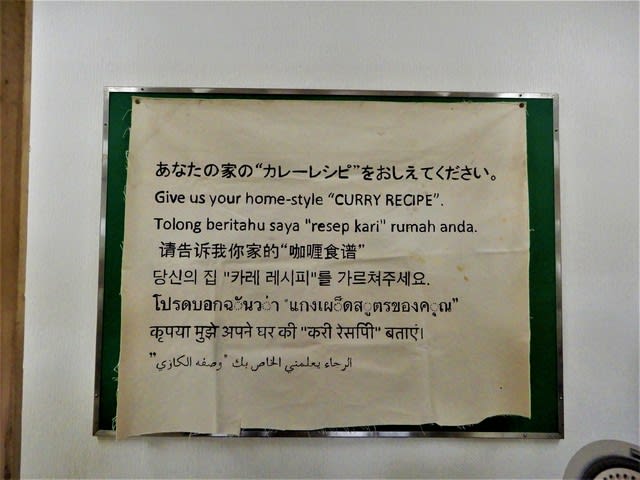 あなたの家の“カレーレシピ”をおしえてください。
Give us your home-style “CURRY RECIPE”.
Tolong beritahu saya "resep kari" rumah anda.
请告诉我你家的“咖喱食谱”
당신의 집 "카레 레시피"를 가르쳐주세요.
โปรดบอกฉันว่า “แกงเผ็ดสูตรของคุณ”
कृपया मुझे अपने घर की "करी रेसिपी" बताएं।
الرجاء يعلمني الخاص بك "وصفه الكاري"